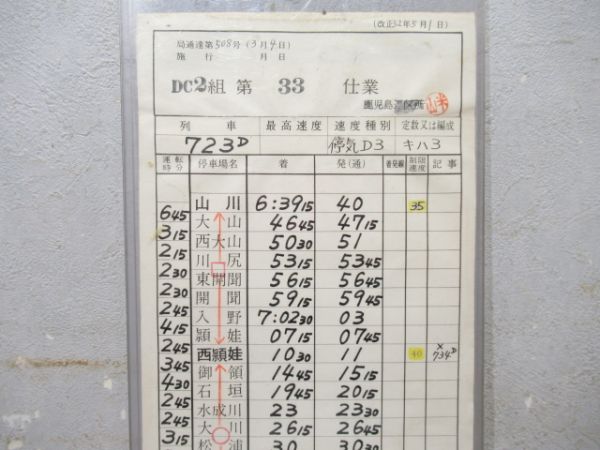 (改正32年5月1日)
局通達第508号(3月4日)
施行 月 日
DC2組 第 33 仕業
鹿児島 区所
列車 最高速度 速度種別 定数又は編成
723D 停気D3 キハ3
運転時分 停車場名 着 発(通) 着発線 制限速度 記事
山川 6:39 15 40 35
6 45
大山 46 45 47 15
3 15
西大山 50 30 51
2 15
川尻 53 15 53 45
2 30
東開聞 56 15 56 45
2 30
開聞 59 15 59 45
2 45
入野 7:02 30 03
4 15
頴娃 07 15 07 45
2 45
西頴娃 10 30 11 40 ×734D
3 45
御領 14 45 15 15
4 30
石垣 19 45 20 15
2 45
水成川 23 23 30
2 45
大川 26 15 26 45
3 15
松浦 30 30 30